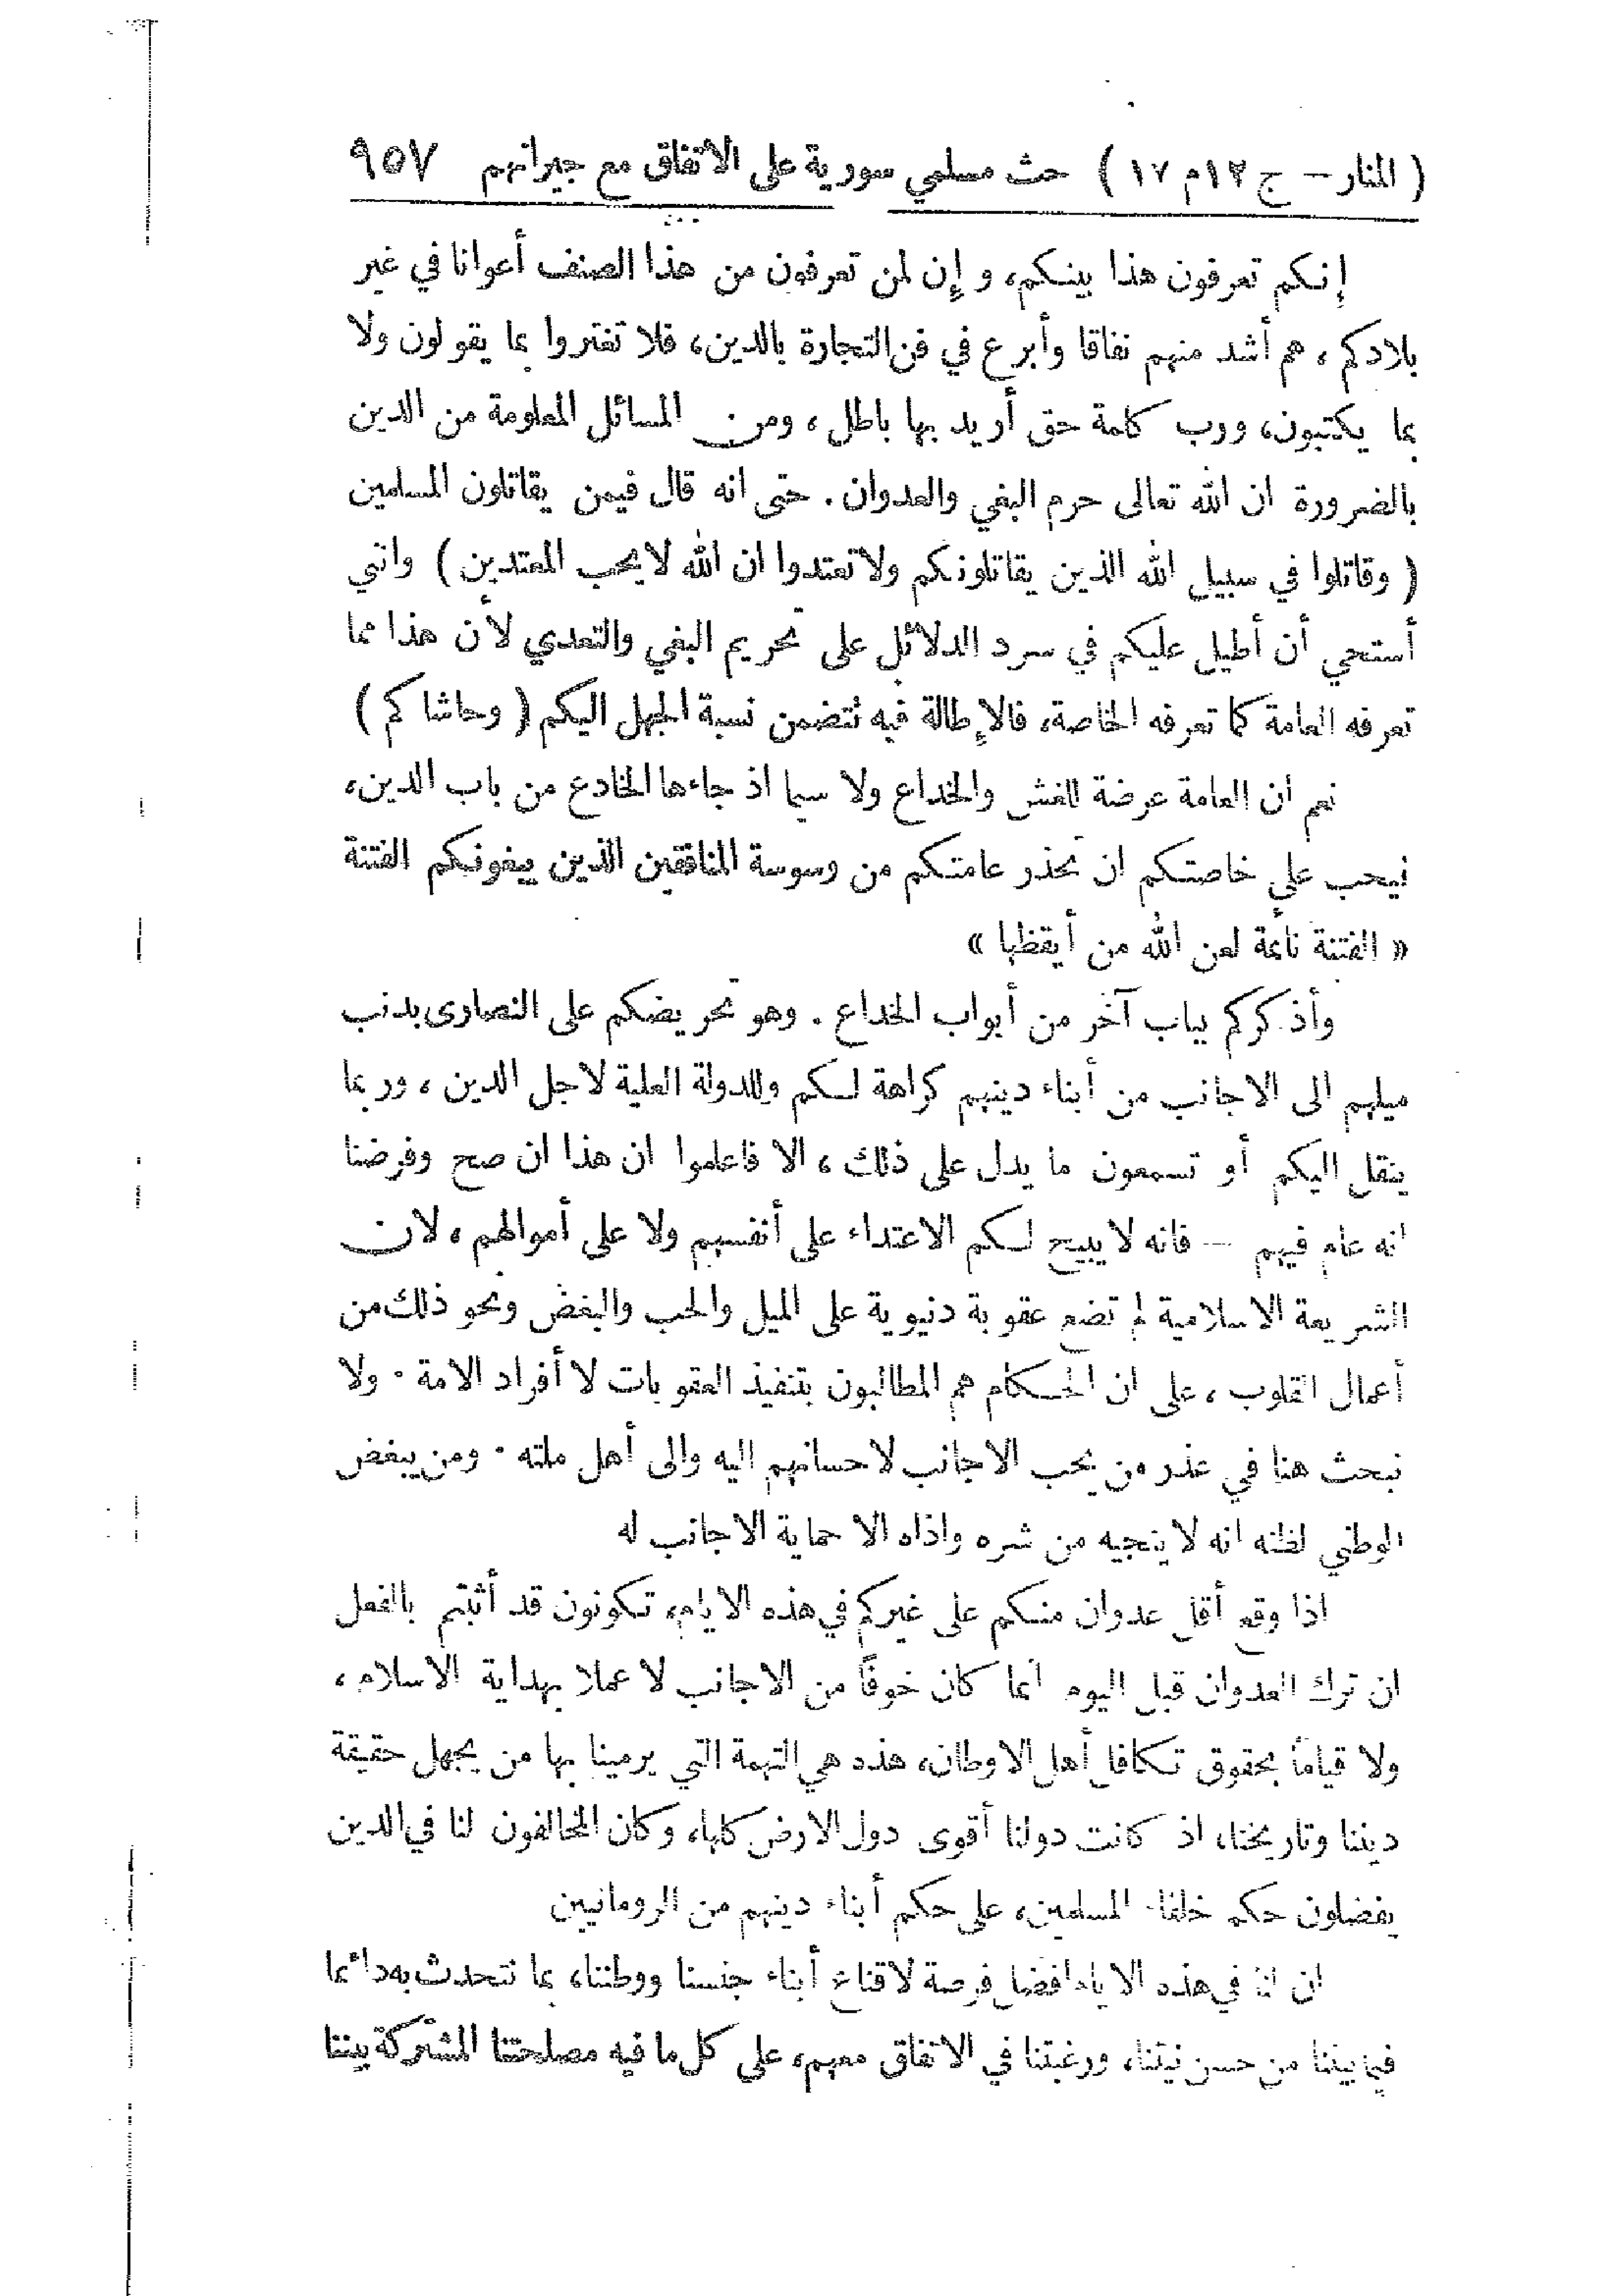 ( المنار – ج ١٢ م ١٧ ) حث مسلمي سورية على الاتفاق مع جيرانهم ٩٥٧
إنكم تعرفون هذا بينكم، وإن لمن تعرفون من هذا الصنف أعوانا في غير
بلادكم ، هم أشد منهم نفاقا وأبرع في فن التجارة بالدين، فلا تغتروا بما يقولون ولا
بما يكتبون، ورب كلمة حق أريد بها باطل ، ومن المسائل المعلومة من الدين
بالضرورة ان الله تعالى حرم البغي والعدوان . حتى انه قال فيمن يقاتلون المسلمين
( وقاتلوا في سبيل الله الذين يقاتلونكم ولا تعتدوا ان الله لا يحب المعتدين ) وانني
أستحي أن أطيل عليكم في سرد الدلائل على تحريم البغي والتعدي لأن هذا مما
تعرفه العامة كما تعرفه الخاصة، فالإطالة فيه تتضمن نسبة الجهل اليكم ( وحاشاكم )
نعم ان العامة عرضة للغش والخداع ولا سيما اذ جاءها الخادع من باب الدين،
فيجب على خاصتكم ان تحذر عامتكم من وسوسة المنافقين الذين يبغونكم الفتنة
« الفتنة نائمة لعن الله من أيقظها »
وأذكركم بباب آخر من أبواب الخداع . وهو تحريضكم على النصارى بذنب
ميلهم الى الاجانب من أبناء دينهم كراهة لكم وللدولة العلية لاجل الدين ، وربما
ينقل اليكم أو تسمعون ما يدل على ذلك ، الا فاعلموا ان هذا ان صح وفرضنا
انه عام فيهم – فانه لا يبيح لكم الاعتداء على أنفسهم ولا على أموالهم ، لان
الشريعة الاسلامية لم تضع عقوبة دنيوية على الميل والحب والبغض ونحو ذلك من
أعمال القلوب ، على ان الحكام هم المطالبون بتنفيذ العقوبات لا أفراد الامة . ولا
نبحث هنا في عذر من يحب الاجانب لاحسانهم اليه والى أهل ملته . ومن يبغض
الوطني لظنه انه لا ينجيه من شره واذاه الا حماية الاجانب له
اذا وقع أقل عدوان منكم على غيركم في هذه الايام، تكونون قد أثبتم بالفعل
ان ترك العدوان قبل اليوم انما كان خوفًا من الاجانب لا عملا بهداية الاسلام ،
ولا قيامًا بحقوق تكافل أهل الاوطان، هذه هي التهمة التي يرمينا بها من يجهل حقيقة
ديننا وتاريخنا، اذ كانت دولنا أقوى دول الارض كلها، وكان المخالفون لنا في الدين
يفضلون حكم خلفاء المسلمين، على حكم أبناء دينهم من الرومانيين
ان لنا في هذه الايام افضل فرصة لاقناع أبناء جنسنا ووطننا، بما نتحدث به دائما
فيما بيننا من حسن نيتنا، ورغبتنا في الاتفاق معهم، على كل ما فيه مصلحتنا المشتركة بيننا